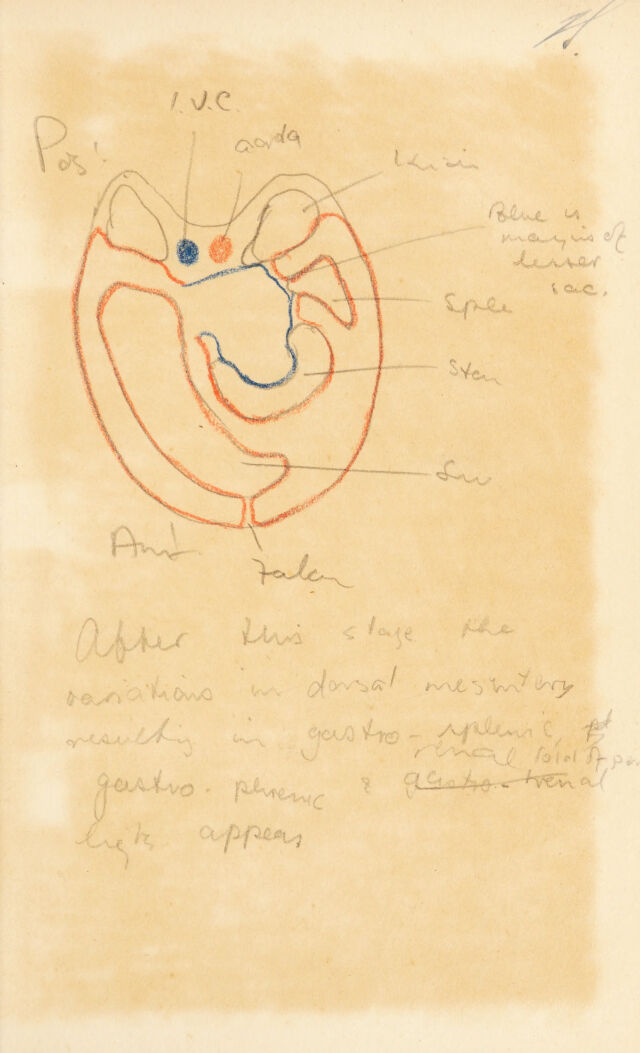 I.V.C.
Pos!
aorta
Blue is
margin of
lesser
sac.
Splee
Stom
Ant.
Falcn
After this stage the
variations in dorsal mesentery
resulting in gastro-splenic,
renal fold of
gastro-phrenic & gastro-renal
ligts appear